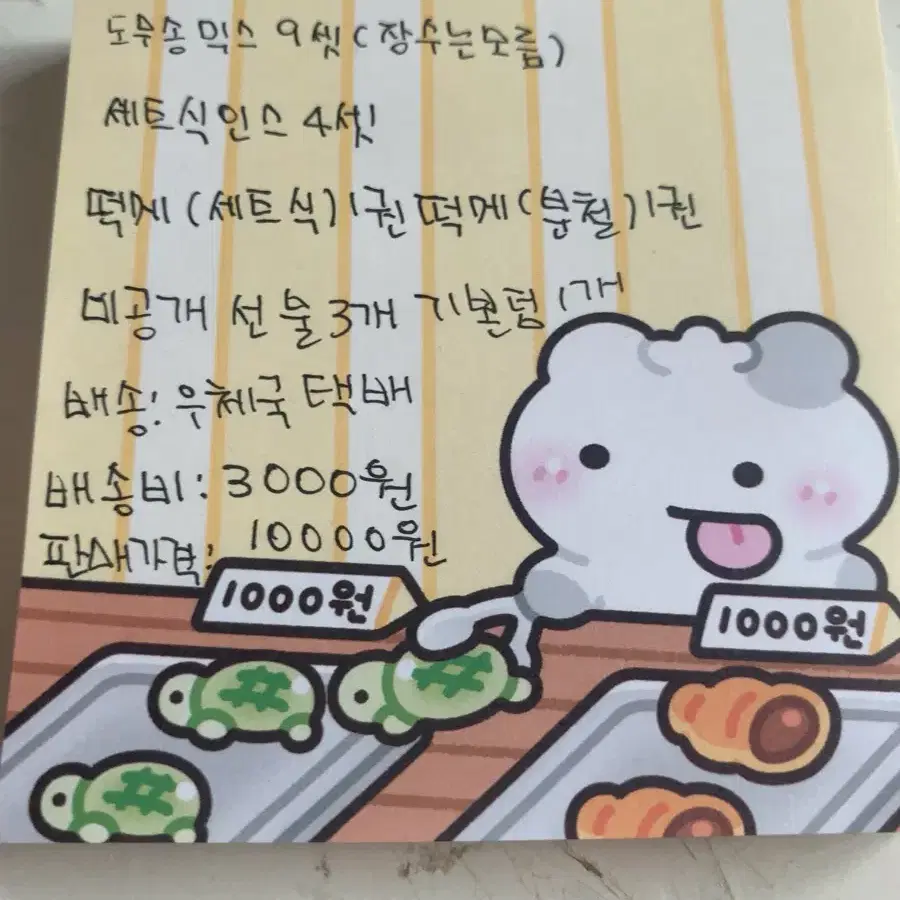 도무송 믹스 9셋(장수는모름)
세트식인스 4셋
떡메(세트식)1권 떡메(분철)1권
비공개 선물3개 기본덤 1개
배송:우체국 택배
배송비:3000원
판매가격: 10000원
1000원
1000원